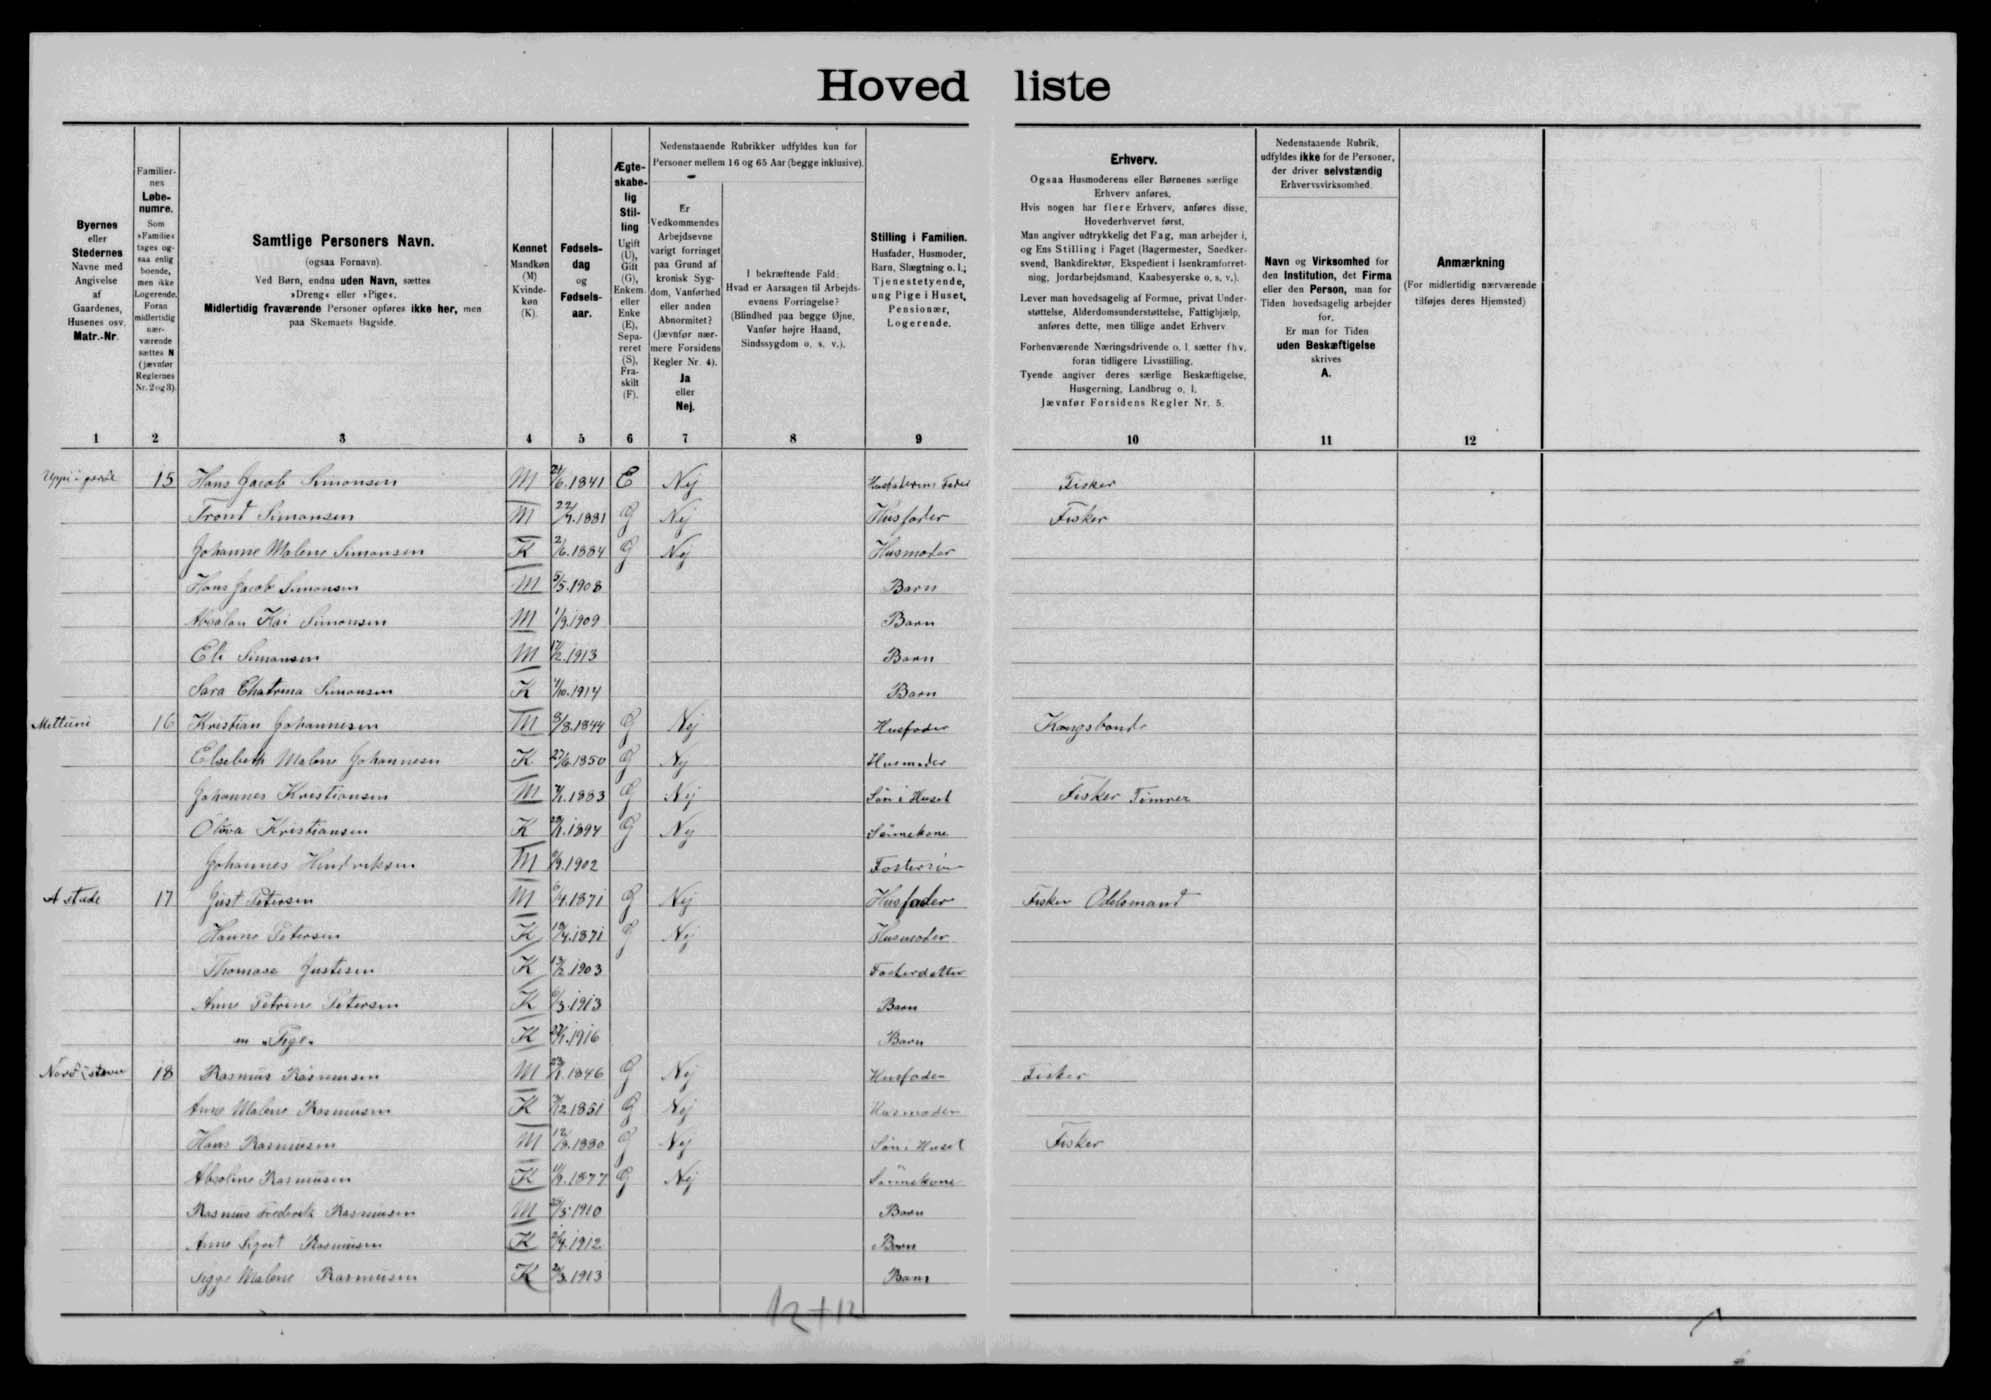 Hoved liste
Byernes
eller
Stedernes
Navne med
Angivelse
af
Gaardenes,
Husenes osv.
Matr.-Nr.
Familier-
nes
Løbe-
numre.
Som
»Familie«
tages og-
saa enlig
boende,
men ikke
Logerende.
Foran
midlertidig
nær-
værende
sættes N
(jævnfør
Reglernes
Nr. 2 og 3).
Samtlige Personers Navn.
(ogsaa Fornavn).
Ved Børn, endnu uden Navn, sættes
»Dreng« eller »Pige«.
Midlertidig fraværende Personer opføres ikke her, men
paa Skemaets Bagside.
Kønnet
Mandkøn
(M)
Kvinde-
køn
(K).
Fødsels-
dag
og
Fødsels-
aar.
Ægte-
skabe-
lig
Stil-
ling
Ugift
(U),
Gift
(G),
Enkem.
eller
Enke
(E),
Sepa-
reret
(S),
Fra-
skilt
(F).
Nedenstaaende Rubrikker udfyldes kun for
Personer mellem 16 og 65 Aar (begge inklusive).
Er
Vedkommendes
Arbejdsevne
varigt forringet
paa Grund af
kronisk Syg-
dom, Vanførhed
eller anden
Abnormitet?
(Jævnfør nær-
mere Forsidens
Regler Nr. 4).
Ja
eller
Nej.
I bekræftende Fald:
Hvad er Aarsagen til Arbejds-
evnens Forringelse?
(Blindhed paa begge Øjne,
Vanfør højre Haand,
Sindssygdom o. s. v.).
Stilling i Familien.
Husfader, Husmoder,
Barn, Slægtning o. l.;
Tjenestetyende,
ung Pige i Huset,
Pensionær,
Logerende.
Erhverv.
Ogsaa Husmoderens eller Børnenes særlige
Erhverv anføres.
Hvis nogen har flere Erhverv, anføres disse,
Hovederhvervet først.
Man angiver udtrykkelig det Fag, man arbejder i,
og Ens Stilling i Faget (Bagermester, Snedker-
svend, Bankdirektør, Ekspedient i Isenkramforret-
ning, Jordarbejdsmand, Kaabesyerske o. s. v.).
Lever man hovedsagelig af Formue, privat Under-
støttelse, Alderdomsunderstøttelse, Fattighjælp,
anføres dette, men tillige andet Erhverv
Forhenværende Næringsdrivende o. l. sætter fhv.
foran tidligere Livsstilling.
Tyende angiver deres særlige Beskæftigelse,
Husgerning, Landbrug o. l.
Jævnfør Forsidens Regler Nr. 5.
Nedenstaaende Rubrik,
udfyldes ikke for de Personer,
der driver selvstændig
Erhvervsvirksomhed.
Navn og Virksomhed for
den Institution, det Firma
eller den Person, man for
Tiden hovedsagelig arbejder
for.
Er man for Tiden
uden Beskæftigelse
skrives
A.
Anmærkning
(For midlertidig nærværende
tilføjes deres Hjemsted)
1 2 3 4 5 6 7 8 9 10 11 12
Uppi i 15 Hans Jacob Simonsen M 24/6.1841 E Nej Husfaderens Fader Fisker
Trond Simonsen M 22/7.1881 G Nej Husfader Fisker
Johanne Malene Simonsen K 2/6.1884 G Nej Husmoder
Hans Jacob Simonsen M 5/5.1908 Barn
Absalon Kai Simonsen M 1/9.1909 Barn
Eli Simonsen M 17/2.1913 Barn
Sara Chatrina Simonsen K 1/10.1914 Barn
16 Kristian Johannesen M 8/8.1844 G Nej Husfader Kongsbonde
Elsebeth Malene Johannesen K 27/6.1850 G Nej Husmoder
Johannes Kristiansen M 1883 G Nej Søn i Huset Fisker Tømrer
Kristiansen K 1894 G Nej Sønnekone
Johannes Hendriksen M 1902 Fostersøn
17 Just Petersen M 1871 G Nej Husfader Fisker Odelsmand
Hanne Petersen K 1871 G Nej Husmoder
Thomasa Justesen K 13/2.1903 Fosterdatter
Anne Petrine Petersen K 1913 Barn
en "Pige" K 1916 Barn
18 Rasmus Rasmussen M 1846 G Nej Husfader Fisker
Anne Malene Rasmussen K 1851 G Nej Husmoder
Hans Rasmussen M 1880 G Nej Søn i Huset Fisker
Absoline Rasmussen K 1877 G Nej Sønnekone
Rasmus Frederik Rasmussen M 1910 Barn
Anne Rasmussen K 1912 Barn
Malene Rasmussen K 1913 Barn
12+12